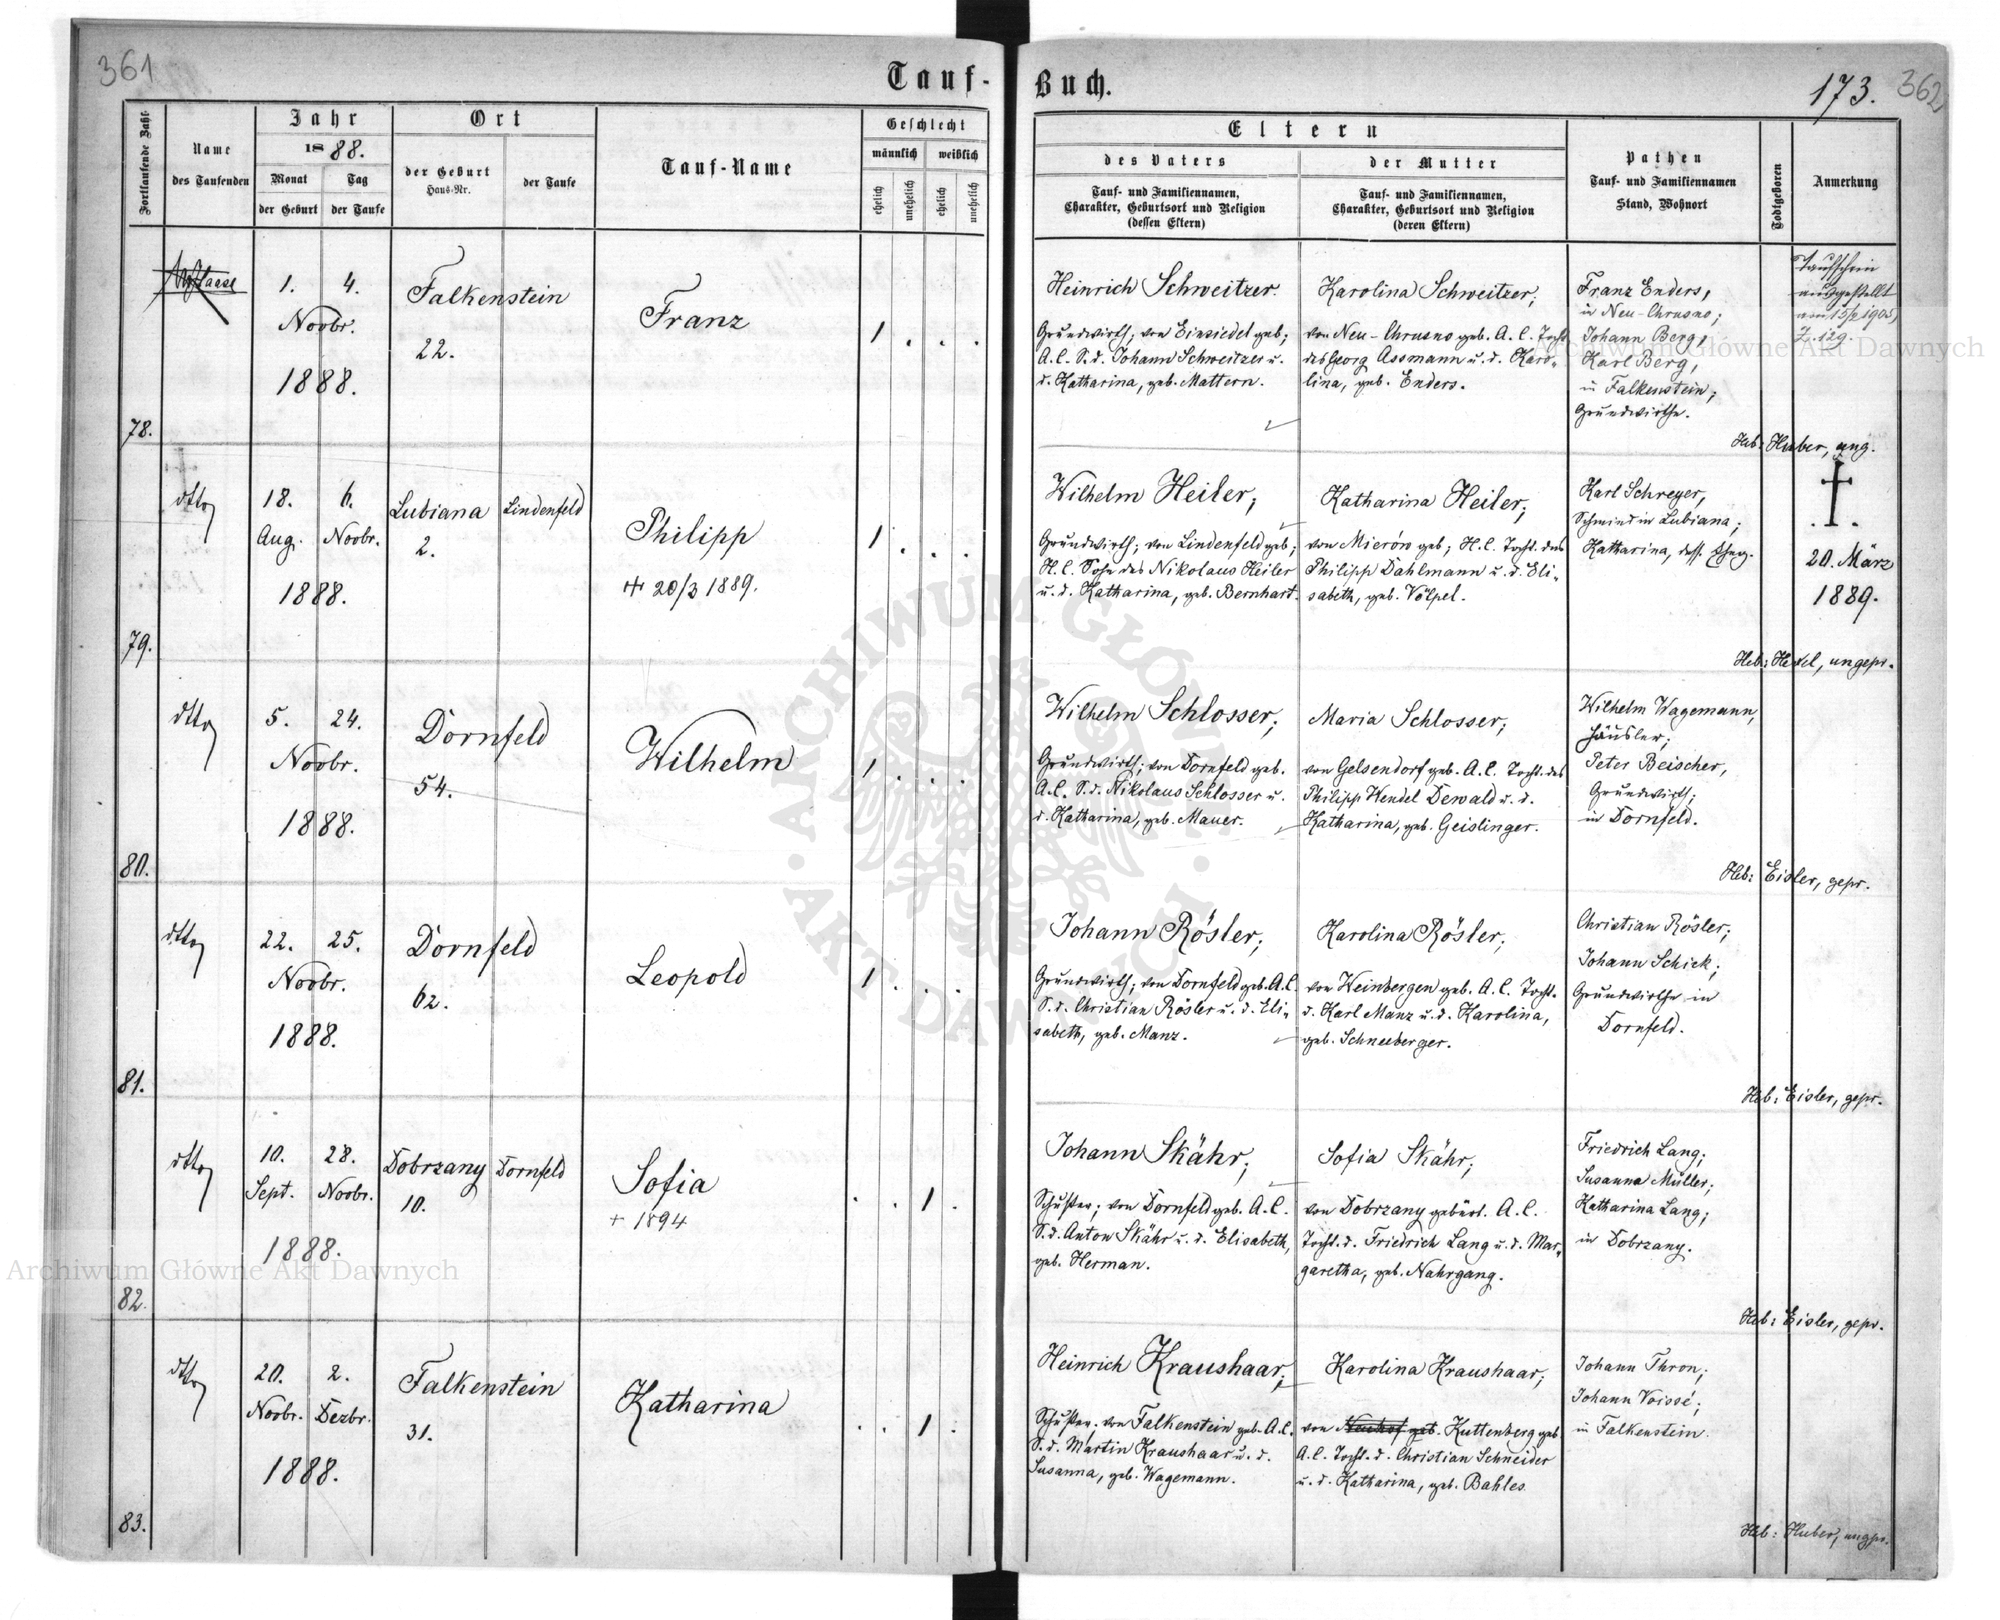 361
Tauf-
Buch.
173.
362
Fortlaufende Zahl
Name
des Taufenden
Jahr
1888.
Monat
Tag
der Geburt
der Taufe
Ort
der Geburt
Haus-Nr.
der Taufe
Tauf-Name
Geschlecht
männlich
weiblich
ehelich
unehelich
ehelich
unehelich
Eltern
des Vaters
Tauf- und Familiennamen,
Charakter, Geburtsort und Religion
(dessen Eltern)
der Mutter
Tauf- und Familiennamen,
Charakter, Geburtsort und Religion
(deren Eltern)
Pathen
Tauf- und Familiennamen
Stand, Wohnort
Todtgeboren
Anmerkung
78.
1. 4.
Novbr.
1888.
Falkenstein
22.
Franz
1 . . .
Heinrich Schweitzer.
Grundwirth; von Einsiedel geb;
A.C. S.d. Johann Schweitzer u.
d. Katharina, geb. Mattern.
Karolina Schweitzer;
von Neu-Chrusno geb. A.C. Tocht
des Georg Assmann u. d. Karo-
lina, geb. Enders.
Franz Enders,
in Neu-Chrusno;
Johann Berg,
Karl Berg,
in Falkenstein;
Grundwirthe.
Taufschein
ausgestellt
am 15/2 1905,
Z. 129.
Heb: Huber, ung.
79.
dtto
18. 6.
Aug. Novbr.
1888.
Lubiana
2.
Lindenfeld
Philipp
+ 20/3 1889.
1 . . .
Wilhelm Heiler;
Grundwirth; von Lindenfeld geb;
H.C. Sohn des Nikolaus Heiler
u. d. Katharina, geb. Bernhart.
Katharina Heiler;
von Mierów geb; H.C. Tocht. des
Philipp Dahlmann u. d. Eli-
sabeth, geb. Völpel.
Karl Schreyer,
Schmied in Lubiana;
Katharina, dess. Eheg.
†
20. März
1889.
Heb: Hexel, ungepr.
80.
dtto
5. 24.
Novbr.
1888.
Dornfeld
54.
Wilhelm
1 . . .
Wilhelm Schlosser;
Grundwirth; von Dornfeld geb.
A.C. S.d. Nikolaus Schlosser u.
d. Katharina, geb. Mauer.
Maria Schlosser;
von Gelsendorf geb. A.C. Tocht. des
Philipp Wendel Dewald u. d.
Katharina, geb. Geislinger.
Wilhelm Wagemann,
Häusler;
Peter Beischer,
Grundwirth;
in Dornfeld.
Heb: Eisler, gepr.
81.
dtto
22. 25.
Novbr.
1888.
Dornfeld
62.
Leopold
1 . . .
Johann Rösler;
Grundwirth; von Dornfeld geb. A.C.
S.d. Christian Rösler u. d. Eli-
sabeth, geb. Manz.
Karolina Rösler;
von Weinbergen geb. A.C. Tocht.
d. Karl Manz u. d. Karolina,
geb. Schneeberger.
Christian Rösler;
Johann Schick;
Grundwirthe in
Dornfeld.
Heb: Eisler, gepr.
82.
dtto
10. 28.
Sept. Novbr.
1888.
Dobrzany
10.
Dornfeld
Sofia
+ 1894
. . 1 .
Johann Skähr;
Schuster; von Dornfeld geb. A.C.
S.d. Anton Skähr u. d. Elisabeth,
geb. Herman.
Sofia Skähr;
von Dobrzany gebürt. A.C.
Tocht. d. Friedrich Lang u. d. Mar-
garetha, geb. Nahrgang.
Friedrich Lang;
Susanna Müller;
Katharina Lang;
in Dobrzany.
Heb: Eisler, gepr.
83.
dtto
20. 2.
Novbr. Dezbr.
1888.
Falkenstein
31.
Katharina
. . 1 .
Heinrich Kraushaar;
Schuster. von Falkenstein geb. A.C.
S.d. Martin Kraushaar u. d.
Susanna, geb. Wagemann.
Karolina Kraushaar;
von Neuhof geb. Kuttenberg geb
A.C. Tocht. d. Christian Schneider
u. d. Katharina, geb. Bahles
Johann Thron;
Johann Voissé;
in Falkenstein.
Heb: Huber, ungpr.
Archiwum Główne Akt Dawnych
Archiwum Główne Akt Dawnych
· ARCHIWUM GŁÓWNE · AKT DAWNYCH